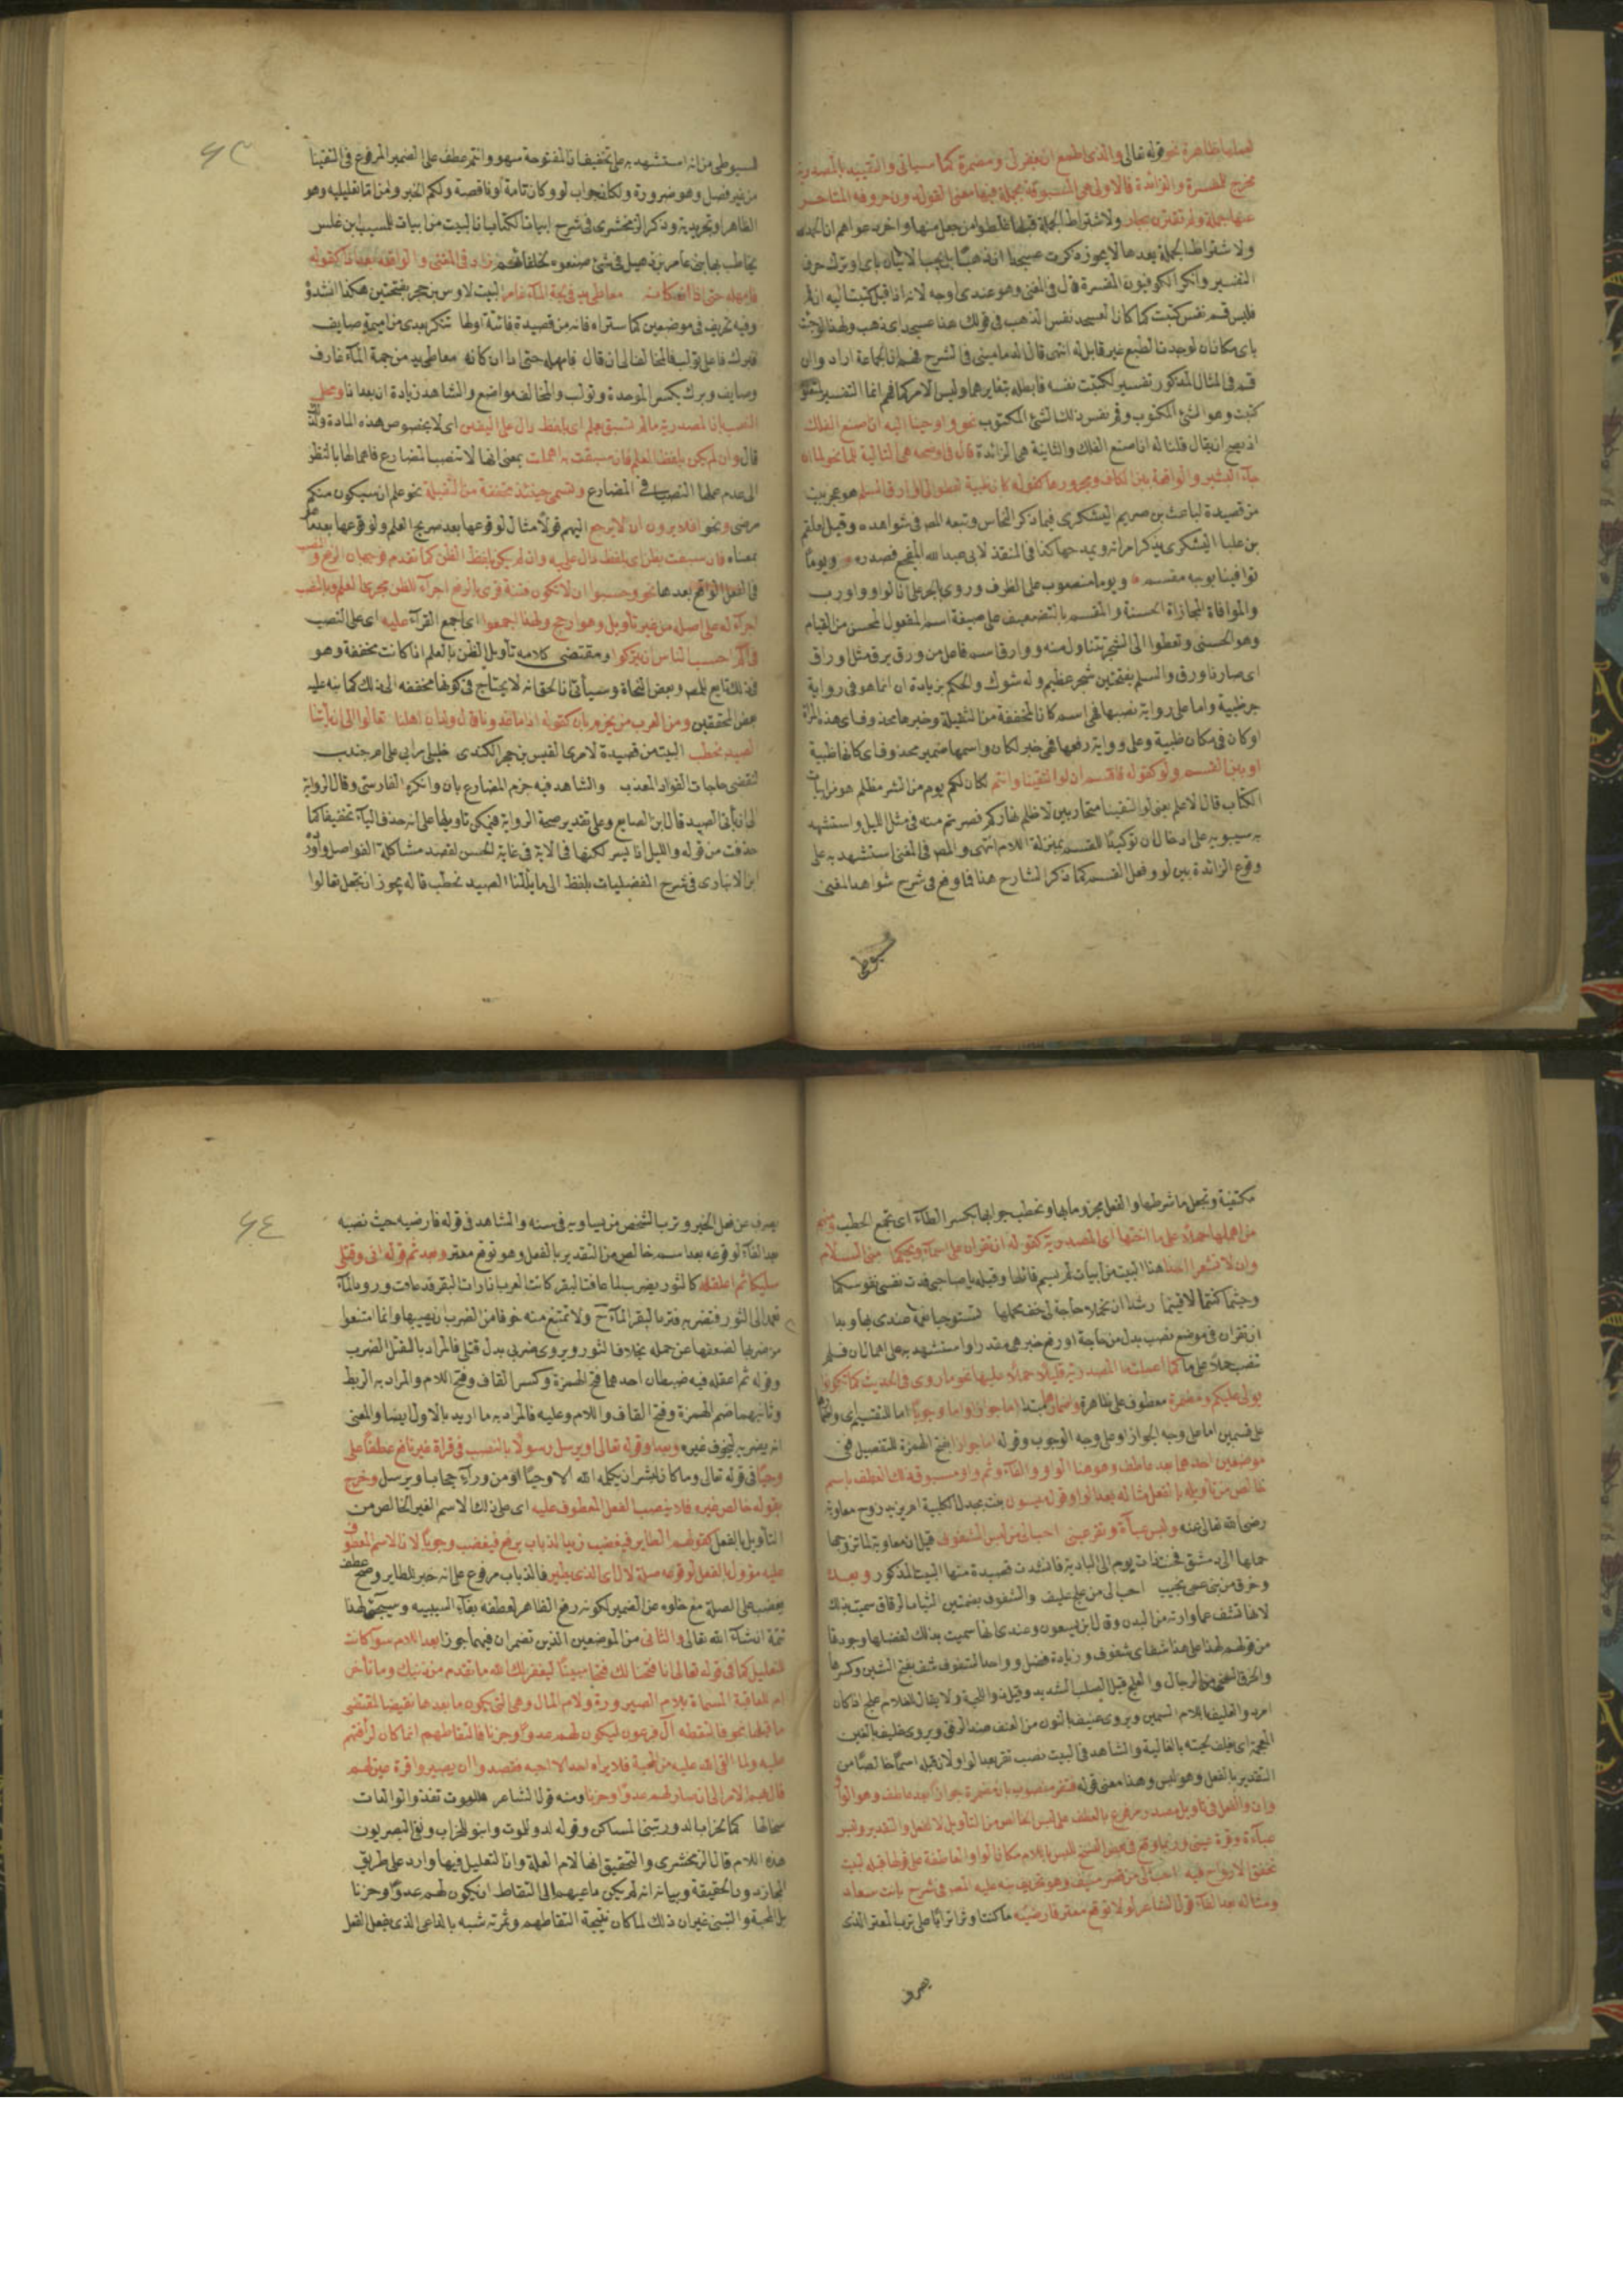 لعملها ظاهرة نحو قوله تعالى والذي اطمع ان يغفر لي ومضمرة كما سياتي والتقييد بالمصدرية
مخرج للمفسرة والزائدة فالاولى هي المسبوقة بجملة فيها معنى القول دون حروفه المتاخر
عنها جملة ولم تقترن بجار ولاشتراط الجملة قبلها غلطوا من جعل منها واخر دعواهم ان الحمد لله
ولاشتراط الجملة بعدها لا يجوز ذكرت عسجدا ان ذهبا بل يجب الاتيان باي او ترك حرف
التفسير وانكر الكوفيون المفسرة قال في المغني وهو عندي اوجه لانه اذا قيل كتبت اليه ان قم
فليس قم نفس كتبت كما كان العسجد نفس الذهب في قولك هذا عسجد اي ذهب ولهذا لو جئت
باي مكان ان لوجدت الطبع غير قابل له انتهى قال الدماميني في الشرح فهم ان الجماعة ارادوا ان
قم في المثال المذكور تفسير لكتبت نفسه فابطله بتغايرهما وليس الامر كما فهم انما التفسير لمتعلق
كتبت وهو الشئ المكتوب وقم نفس ذلك الشئ المكتوب نحو واوحينا اليه ان اصنع الفلك
اذ يصح ان يقال قلنا له ان اصنع الفلك والثانية هي الزائدة قال في اوضحه هي التالية للما نحو فلما ان
جاء البشير والواقعة بين الكاف ومجرورها كقوله كان ظبية تعطو الى وارق السلم هو عجز بيت
من قصيدة لباعث بن صريم اليشكري فيما ذكر النحاس وتبعه المص في شواهده وقيل لعلقم
بن علبا اليشكري يذكر امراته ويمدحها كذا في المنقذ لابي عبد الله المفجع فصدره ويوما
توافينا بوجه مقسم ويوما منصوب على الظرف وروي بالجر على ان الواو واو رب
والموافاة المجازاة الحسنة والمقسم بالتضعيف على صيغة اسم المفعول المحسن من القسام
وهو الحسن وتعطو الى الشجر تتناول منه ووارق اسم فاعل من ورق يرق مثل اوراق
اي صار ناورق والسلم بفتحتين شجر عظيم وله شوك والحكم بزيادة ان انما هو في رواية
جر ظبية واما على رواية نصبها فهي اسم كان المخففة من الثقيلة وخبرها محذوف اي هذه المراة
او كان في مكان ظبية وعلى رواية رفعها فهي خبر لكان واسمها ضمير محذوف اي كانها ظبية
او بين القسم ولو كقوله فاقسم ان لو التقينا وانتم لكان لكم يوم من الشر مظلم هو من ابيات
الكتاب قال الاعلم يعني لو التقينا متحاربين لاظلم نهاركم فصرتم منه في مثل الليل واستشهد
به سيبويه على ادخال ان توكيدا للقسم بمنزلة اللام انتهى والمص في المغني استشهد به على
وقوع الزائدة بين لو وفعل القسم كما ذكر الشارح هنا فما وقع في شرح شواهد المغني
للسيوطي
٦٣
للسيوطي من انه استشهد به على تخفيف ان المفتوحة سهو وانتم عطف على الضمير المرفوع في التقينا
من غير فصل وهو ضرورة ولكان جواب لو وكان تامة او ناقصة ولكم الخبر ومن اما تعليلية وهو
الظاهر او تجريدية وذكر الزمخشري في شرح ابيات الكتاب ان البيت من ابيات للمسيب بن علس
يخاطب بها بني عامر بن ذهل في شئ صنعوه بحلفائهم زاد في المغني والواقعة بعد اذا كقوله
فامهله حتى اذا ان كانه معاطي يد في لجة الماء غامر البيت لاوس بن حجر بفتحتين هكذا انشدؤ
وفيه تحريف في موضعين كما ستراه فانه من قصيدة فائية اولها تنكر بعدي من اميمة صايف
فبرك فاعلى تولب فالمخالف الى ان قال فامهله حتى اذا ان كانه معاطي يد من جمة الماء غارف
وصايف وبرك بكسر الموحدة وتولب والمخالف مواضع والشاهد زيادة ان بعد اذا ومحل
النصب بان المصدرية ما لم تسبق بعلم اي بلفظ دال على اليقين اي لا بخصوص هذه المادة ولذا
قال وان لم يكن بلفظ العلم فان سبقت به اهملت بمعنى انها لا تنصب المضارع فاهمالها بالنظر
الى عدم عملها النصب في المضارع وتسمى حينئذ مخففة من الثقيلة نحو علم ان سيكون منكم
مرضى ونحو افلا يرون ان لا يرجع اليهم قولا مثال لوقوعها بعد صريح العلم ولوقوعها بعد ما هو
بمعناه فان سبقت بظن اي بلفظ دال عليه وان لم يكن بلفظ الظن كما تقدم فوجهان الرفع والنصب
في الفعل الواقع بعدها نحو وحسبوا ان لا تكون فتنة قرئ بالرفع اجراء للظن مجرى العلم وبالنصب
اجراء له على اصله من غير تاويل وهو ارجح ولهذا اجمعوا اي اجمع القراء عليه اي على النصب
في الم احسب الناس ان يتركوا ومقتضى كلامه تأويل الظن بالعلم اذا كانت مخففة وهو
في ذلك تابع للمص وبعض النحاة وسيأتي ان الحق انه لا يحتاج في كونها مخففة الى ذلك كما نبه عليه
بعض المحققين ومن العرب من يجزم بان كقوله اذا ما غدونا قال ولدان اهلنا تعالوا الى ان ياتنا
الصيد نحطب البيت من قصيدة لامرئ القيس بن حجر الكندي خليلي مرا بي على ام جندب
لنقضي حاجات الفواد المعذب والشاهد فيه جزم المضارع بان وانكره الفارسي وقال الرواية
الى ان يأتي الصيد قال ابن الصايع وعلى تقدير صحة الرواية فيمكن تاويلها على انه حذف الياء تخفيفا كما
حذفت من قوله والليل اذا يسر لكنها في الاية في غاية الحسن لقصد مشاكلة الفواصل واورد
ابن الانباري في شرح المفضليات بلفظ الى ما يأتنا الصيد نحطب قال يجوز ان تجعل تعالوا
مكتفية وتجعل ما شرطها والفعل مجزوما بها ونحطب جوابها بكسر الطاء اي نجمع الحطب ومنهم
من اهملها حملا على ما اختها اي المصدرية كقوله ان تقران على اسماء ويحكما مني السلام
وان لا تشعرا احدا هذا البيت من ابيات لم يسم قائلها وقبله يا صاحبي فدت نفسي نفوسكما
وحيثما كنتما لاقيتما رشدا ان تحملا حاجة لي خف محملها تستوجبا نعمة عندي بها ويدا
ان تقران في موضع نصب بدل من حاجة او رفع خبر هي مقدرا واستشهد به على اهمال ان فلم
تنصب حملا على ما كما اعملت ما المصدرية قليلا حملا عليها نحو ما روي في الحديث كما تكونوا
يولى عليكم ومضمرة معطوف على ظاهرة واضمارها مبتدا اما جوازا واما وجوبا اما للتقسيم اي
على قسمين اما على وجه الجواز او على وجه الوجوب وقوله اما جوازا بفتح الهمزة للتفصيل ففي
موضعين احدهما بعد عاطف وهو هنا الواو والفاء وثم واو مسبوق ذلك العطف باسم
خالص من تاويله بالفعل مثاله بعد الواو قوله ميسون بنت بجدل الكلبية ام يزيد زوج معاوية
رضي الله تعالى عنه ولبس عباءة وتقر عيني احب الي من لبس الشفوف قيل ان معاوية لما تزوجها
حملها الى دمشق فحنت ذات يوم الى البادية فانشدت قصيدة منها البيت المذكور وبعده
وخرق من بني عمي نجيب احب الي من علج عليف والشفوف بضمتين الثياب الرقاق سميت بذلك
لانها تشف عما وراءته من البدن وقال ابن يسعون وعندي انها سميت بذلك لفضلها وجودتها
من قولهم لهذا على هذا شف اي شفوف وزيادة فضل وواحد الشفوف شف بفتح الشين وكسرها
والخرق السخي من الرجال والعلج قيل الصلب الشديد وقيل ذو اللحية ولا يقال للغلام علج اذا كان
امرد والعليف باللام السمين ويروى عنيف بالنون من العنف ضد الرفق ويروى غليف بالغين
المعجمة اي يغلف لحيته بالغالية والشاهد في البيت نصب تقر بعد الواو لان قبله اسما خالصا من
التقدير بالفعل وهو لبس وهذا معنى قوله فتقر منصوب بان مضمرة جوازا بعد عاطف وهو الواو
وان والفعل في تاويل مصدر مرفوع بالعطف على لبس الخالص من التأويل لا الفعل والتقدير ولبس
عباءة وقرة عيني وربما وقع في بعض النسخ للبس باللام مكان الواو والعاطفة على قولها قبله لبيت
تخفق الارواح فيه احب الي من قصر منيف وهو تحريف نبه عليه المص في شرح بانت سعاد
ومثاله بعد الفاء قول الشاعر لولا توقع معتر فارضيه ما كنت اوثر اترابا على ترب المعتر الذي
يعرف
٦٤
يعرف من فعل الخير وترب الشخص من يساويه في سنه والشاهد في قوله فارضيه حيث نصبه
بعد الفاء لوقوعه بعد اسم خالص من التقدير بالفعل وهو توقع معتر وبعد ثم قوله اني وقتلي
سليكا ثم اعقله كالثور يضرب لما عافت البقر كانت العرب اذا رات البقر قد عافت ورود الماء
تعمد الى الثور فتضربه فترد البقر الماء ح ولا تمتنع منه خوفا من الضرب ان يصيبها وانما امتنعوا
من ضربها لضعفها عن حمله بخلاف الثور ويروى ضربي بدل قتلي فالمراد بالقتل الضرب
وقوله ثم اعقله فيه ضبطان احدهما فتح الهمزة وكسر القاف وفتح اللام والمراد به الربط
وثانيهما ضم الهمزة وفتح القاف واللام وعليه فالمراد به ما اريد بالاول ايضا والمعنى
انه يضربه ليخوف غيره وبعد او قوله تعالى او يرسل رسولا بالنصب في قراة غير نافع عطفا على
وحيا في قوله تعالى وما كان لبشر ان يكلمه الله الا وحيا او من وراء حجاب او يرسل وخرج
بقوله خالص غيره فلا ينصب الفعل المعطوف عليه اي على ذلك الاسم الغير الخالص من
التأويل بالفعل كقولهم الطاير فيغضب زيد الذباب برفع فيغضب وجوبا لان الاسم المعطوف
عليه مؤول بالفعل لوقوعه صلة لال اي الذي يطير فالذباب مرفوع على انه خبر للطاير وصح عطف
يغضب على الصلة مع خلوه عن الضمير لكونه رفع الظاهر لعطفه بفاء السببية وسيجئ لهذا
تتمة انشاء الله تعالى والثاني من الموضعين الذين تضمر ان فيهما جوزا بعد اللام سواء كانت
للتعليل كما في قوله تعالى انا فتحنا لك فتحا مبينا ليغفر لك الله ما تقدم من ذنبك وما تأخر
ام للعاقبة المسماة بلام الصيرورة ولام المال وهي التي يكون ما بعدها نقيضا لمقتضى
ما قبلها نحو فالتقطه آل فرعون ليكون لهم عدوا وحزنا فالتقاطهم انما كان لرأفتهم
عليه ولما القى الله عليه من المحبة فلا يراه احد الا احبه فقصدوا ان يصيروا قرة عين لهم
قال بهم الامر الى ان صار لهم عدوا وحزنا ومنه قول الشاعر فللموت تغذو الوالدات
سخالها كما لخراب الدور تبنى المساكن وقوله لدوا للموت وابنوا للخراب ونفى البصريون
هذه اللام قال الزمخشري والتحقيق انها لام العلة وان التعليل فيها وارد على طريق
المجاز دون الحقيقة وبيانه انه لم يكن داعيهم الى التقاط ان يكون لهم عدوا وحزنا
بل المحبة والتبني غير ان ذلك لما كان نتيجة التقاطهم وثمرته شبه بالداعي الذي يفعل الفعل